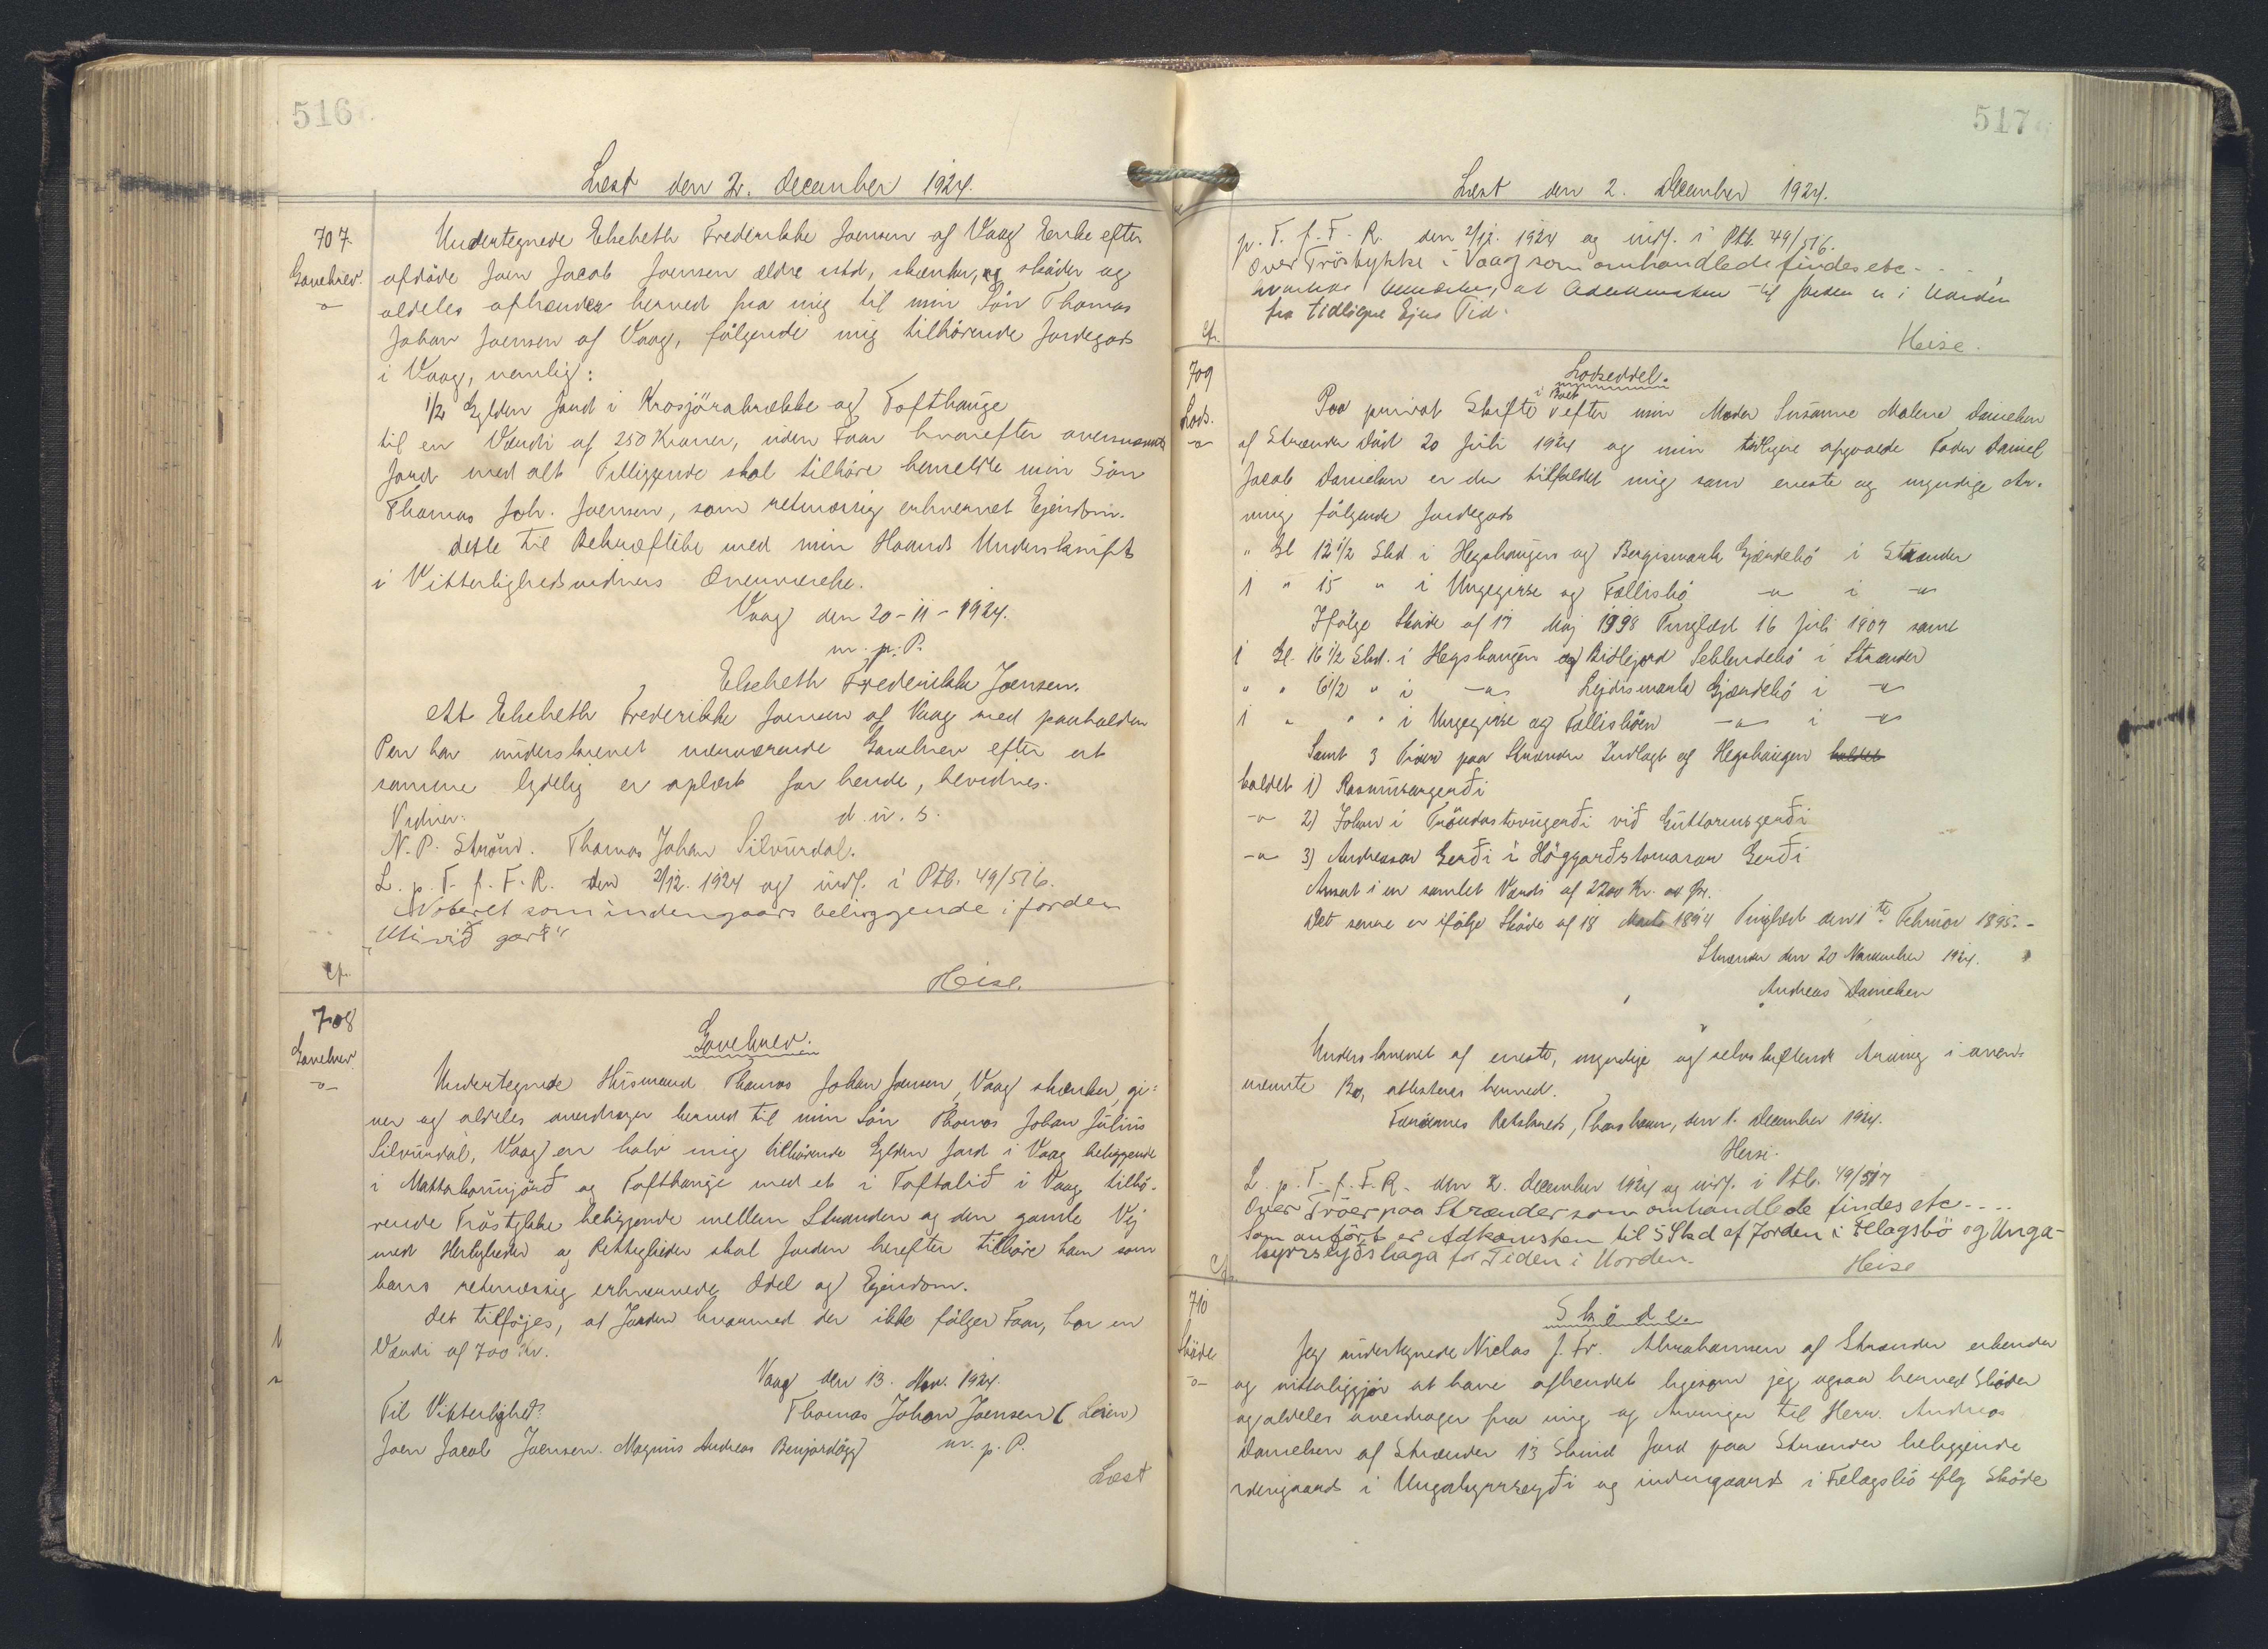 516
Læst den 2. december 1924.
707.
Gavebrev.
Undertegnede Elsebeth Frederikke Joensen af Vaag Enke efter
afdöde Joen Jacob Joensen ældre sstd, skænker, og sköder og
aldeles afhænder herved fra mig til min Sön Thomas
Johan Joensen af Vaag, fölgende mig tilhörende Jordegods
i Vaag, nemlig:
1/2 Gylden Jord i Krosjörabrække og Tofthauge
til en Værdi af 250 Kroner, uden Faar hvorefter ovennævnte
Jord med alt Tilliggende skal tilhöre bemeldte min Sön
Thomas Joh. Joensen, som retmæssig erhvervet Ejendom.
dette til Bekræftelse med min Haands Underskrift
i Vitterlighedsvidners Overværelse.
Vaag den 20-11-1924.
m. p. P.
Elsebeth Frederikke Joensen.
At Elsebeth Frederikke Joensen af Vaag med paaholden
Pen har underskrevet nærværende Gavebrev efter at
samme lydelig er oplæst for hende, bevidnes.
Vidner: d. u. s.
N. P. Strönd. Thomas Johan Silvurdal.
L. p. T. f. F. R. den 2/12. 1924 og indf. i Ptb. 49/516.
Noteret som indengaars beliggende i jorden
"Uti við garð"
cf.
Heise.
708
Gavebrev
Gavebrev.
Undertegnede Husmand Thomas Johan Joensen, Vaag skænker, gi=
ver og aldeles overdrager herved til min Sön Thomas Johan Julius
Silvurdal, Vaag en halv mig tilhörende Gylden Jord i Vaag beliggende
i Mattabonnjörð og Tofthauge med et i Toftalið i Vaag tilhö-
rende Tröstykke beliggende mellem Stranden og den gamle Vej
med Herligheder og Rettigheder skal Jorden herefter tilhöre ham som
hans retmæssig erhvervede Odel og Ejendom.
det tilföjes, at Jorden hvormed der ikke fölger Faar, har en
Værdi af 700 Kr.
Vaag den 13. Nov. 1924.
Til Vitterlighed: Thomas Johan Joensen (Leien)
Joen Jacob Joensen. Magnus Andreas Benjardögg m. p. P.
Læst
517
Læst den 2. december 1924.
p. T. f. F. R. den 2/12. 1924 og indf. i Ptb. 49/516.
Over Tröstykke i Vaag som omhandlede findes etc - - - .
hvorhos bemærkes, at Adkomsten til Jorden er i Uorden
fra tidligere Ejers Tid.
cf.
Heise.
709
Lods.
Lodseddel.
Paa privat Skifte i Boet efter min Moder Susanne Malene Danielsen
af Strænder död 20 Juli 1924 og min tidligere afgaaede Fader Daniel
Jacob Danielsen er der tilfaldet mig som eneste og myndige Ar-
ving fölgende Jordegods
" Gl 12 1/2 Skd i Hegshaugen og Bergismark Gjærdebö i Strænder
1 " 15 " i Ungegirse og Fællisbö -"- i -"-
Ifölge Sköde af 17 Maj 1898 Tinglæst 16 Juli 1907 samt
1 Gl. 16 1/2 Skd. i Hegshaugen og Bidlejord Sehlendebö i Strænder
" " 6 1/2 " i -"- Lejdismark Gjærdebö i -"-
1 " " " i Ungegirse og Fællisböen -"- i -"-
Samt 3 Tröer paa Strænder Indlagt af Hegshaugen
kaldet 1) Rasmusargerði
-"- 2) Johan i Tröndastovugerði við Guttormsgerði
-"- 3) Andreasar Gerði i Höggarðstomasar Gerði
Ansat i en samlet Værdi af 2200 Kr. 00 Öre.
Det senere er ifölge Sköde af 18 Marts 1894 Tinglæst den 1te Februar 1895.-
Strænder den 20 November 1924.
Andreas Danielsen
Underskrevet af eneste, myndige og selvskiftende Arving i oven-
nævnte Bo, attesteres herved.
Færöernes Retskreds, Thorshavn, den 1. december 1924.
Heise.
L. p. T. f. F. R. den 2. december 1924 og indf. i Ptb. 49/517
Over Tröer paa Strænder som omhandlede findes etc - - ..
Som anfört er Adkomsten til 5 Skd af Jorden i Felagsbö og Unga-
kyrrseyðshaga for Tiden i Uorden.
Cf.
Heise
710
Sköde
Sköde.
Jeg undertegnede Niclas J. Fr. Abrahamsen af Strænder erkender
og vitterliggjör at have afhændet ligesom jeg ogsaa herved Sköder
og aldeles overdrager fra mig og Arvinger til Herr. Andreas
Danielsen af Strænder 13 Skind Jord paa Strænder beliggende
udengaards i Ungakyrrseyði og indengaards i Felagsbö iflg Sköde